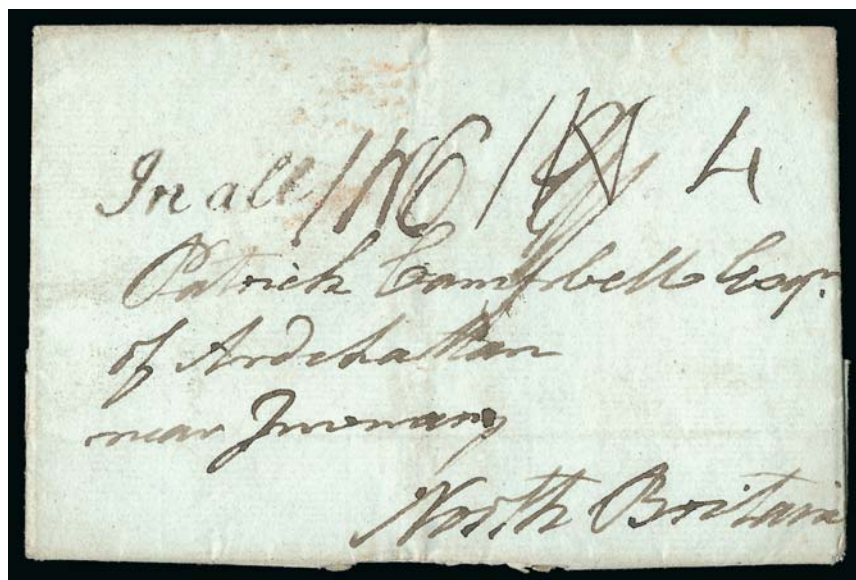 In all 4
Patrick Campbell Esqr.
of Ardchattan
near Inverary
North Britain